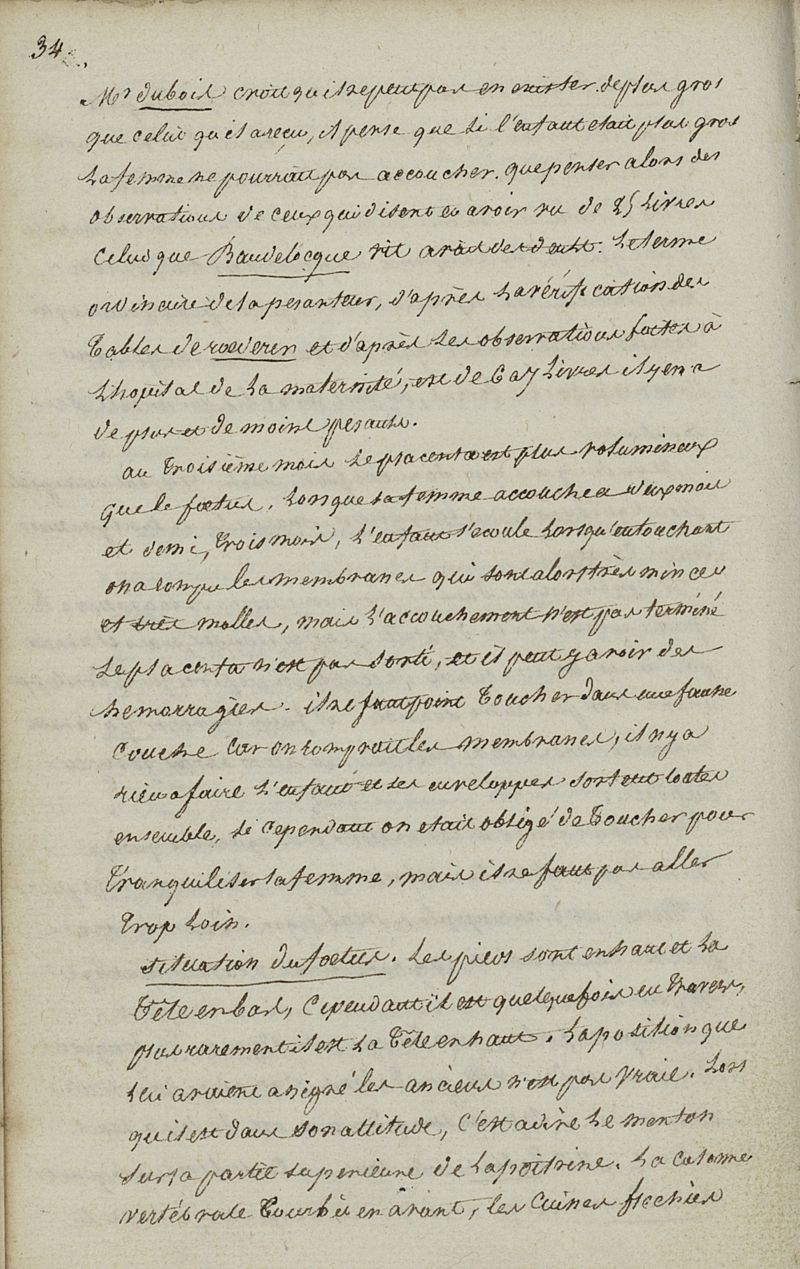 34
Mr dubois croit qu'il ne peut pas en exister de plus gros
que celui qu'il a reçu, il pense que si l'enfant etait plus gros
la femme ne pourrait pas accoucher. que penser alors des
observations de ceux qui disent en avoir vu de 25 Livres
celui que Baudelocque vit avait des dents. Le terme
ordinaire de la pesanteur, d'après la vérification des
Tables de roederer et d'après les observations faites à
L'hopital de la maternité, est de 6 a 7 Livres il y en a
de plus et de moins pesants.
au Troisième mois le placenta est plus volumineux
que le fœtus. Lorsque la femme accouche a deux mois
et demi, Trois mois, L'enfant s'ecoule lorsqu'en touchant
on a rompu les membranes qui sont alors très minces
et très molles, mais l'accouchement n'est pas terminé
le placenta n'est pas sorti, et il peut y avoir des
hemorragies. il ne faut point Toucher dans une fausse
couche car on romprait les membranes, il n'y a
rien a faire l'enfant et ses enveloppes sortent toutes
ensemble, si cependant on etait obligé de Toucher pour
Tranquiliser la femme, mais il ne faut pas aller
Trop Loin.
situation du fœtus. Les pieds sont en haut et la
Tête en bas, Cependant il est quelquefois en Travers,
plus rarement il est la Tête en haut. La position que
lui avaient assigné les anciens n'est pas vraie. Lors
qu'il est dans son attitude, c'est a dire le menton
sur la partie superieure de la poitrine. La colonne
vertébrale Courbée en avant, les Cuisses fléchies